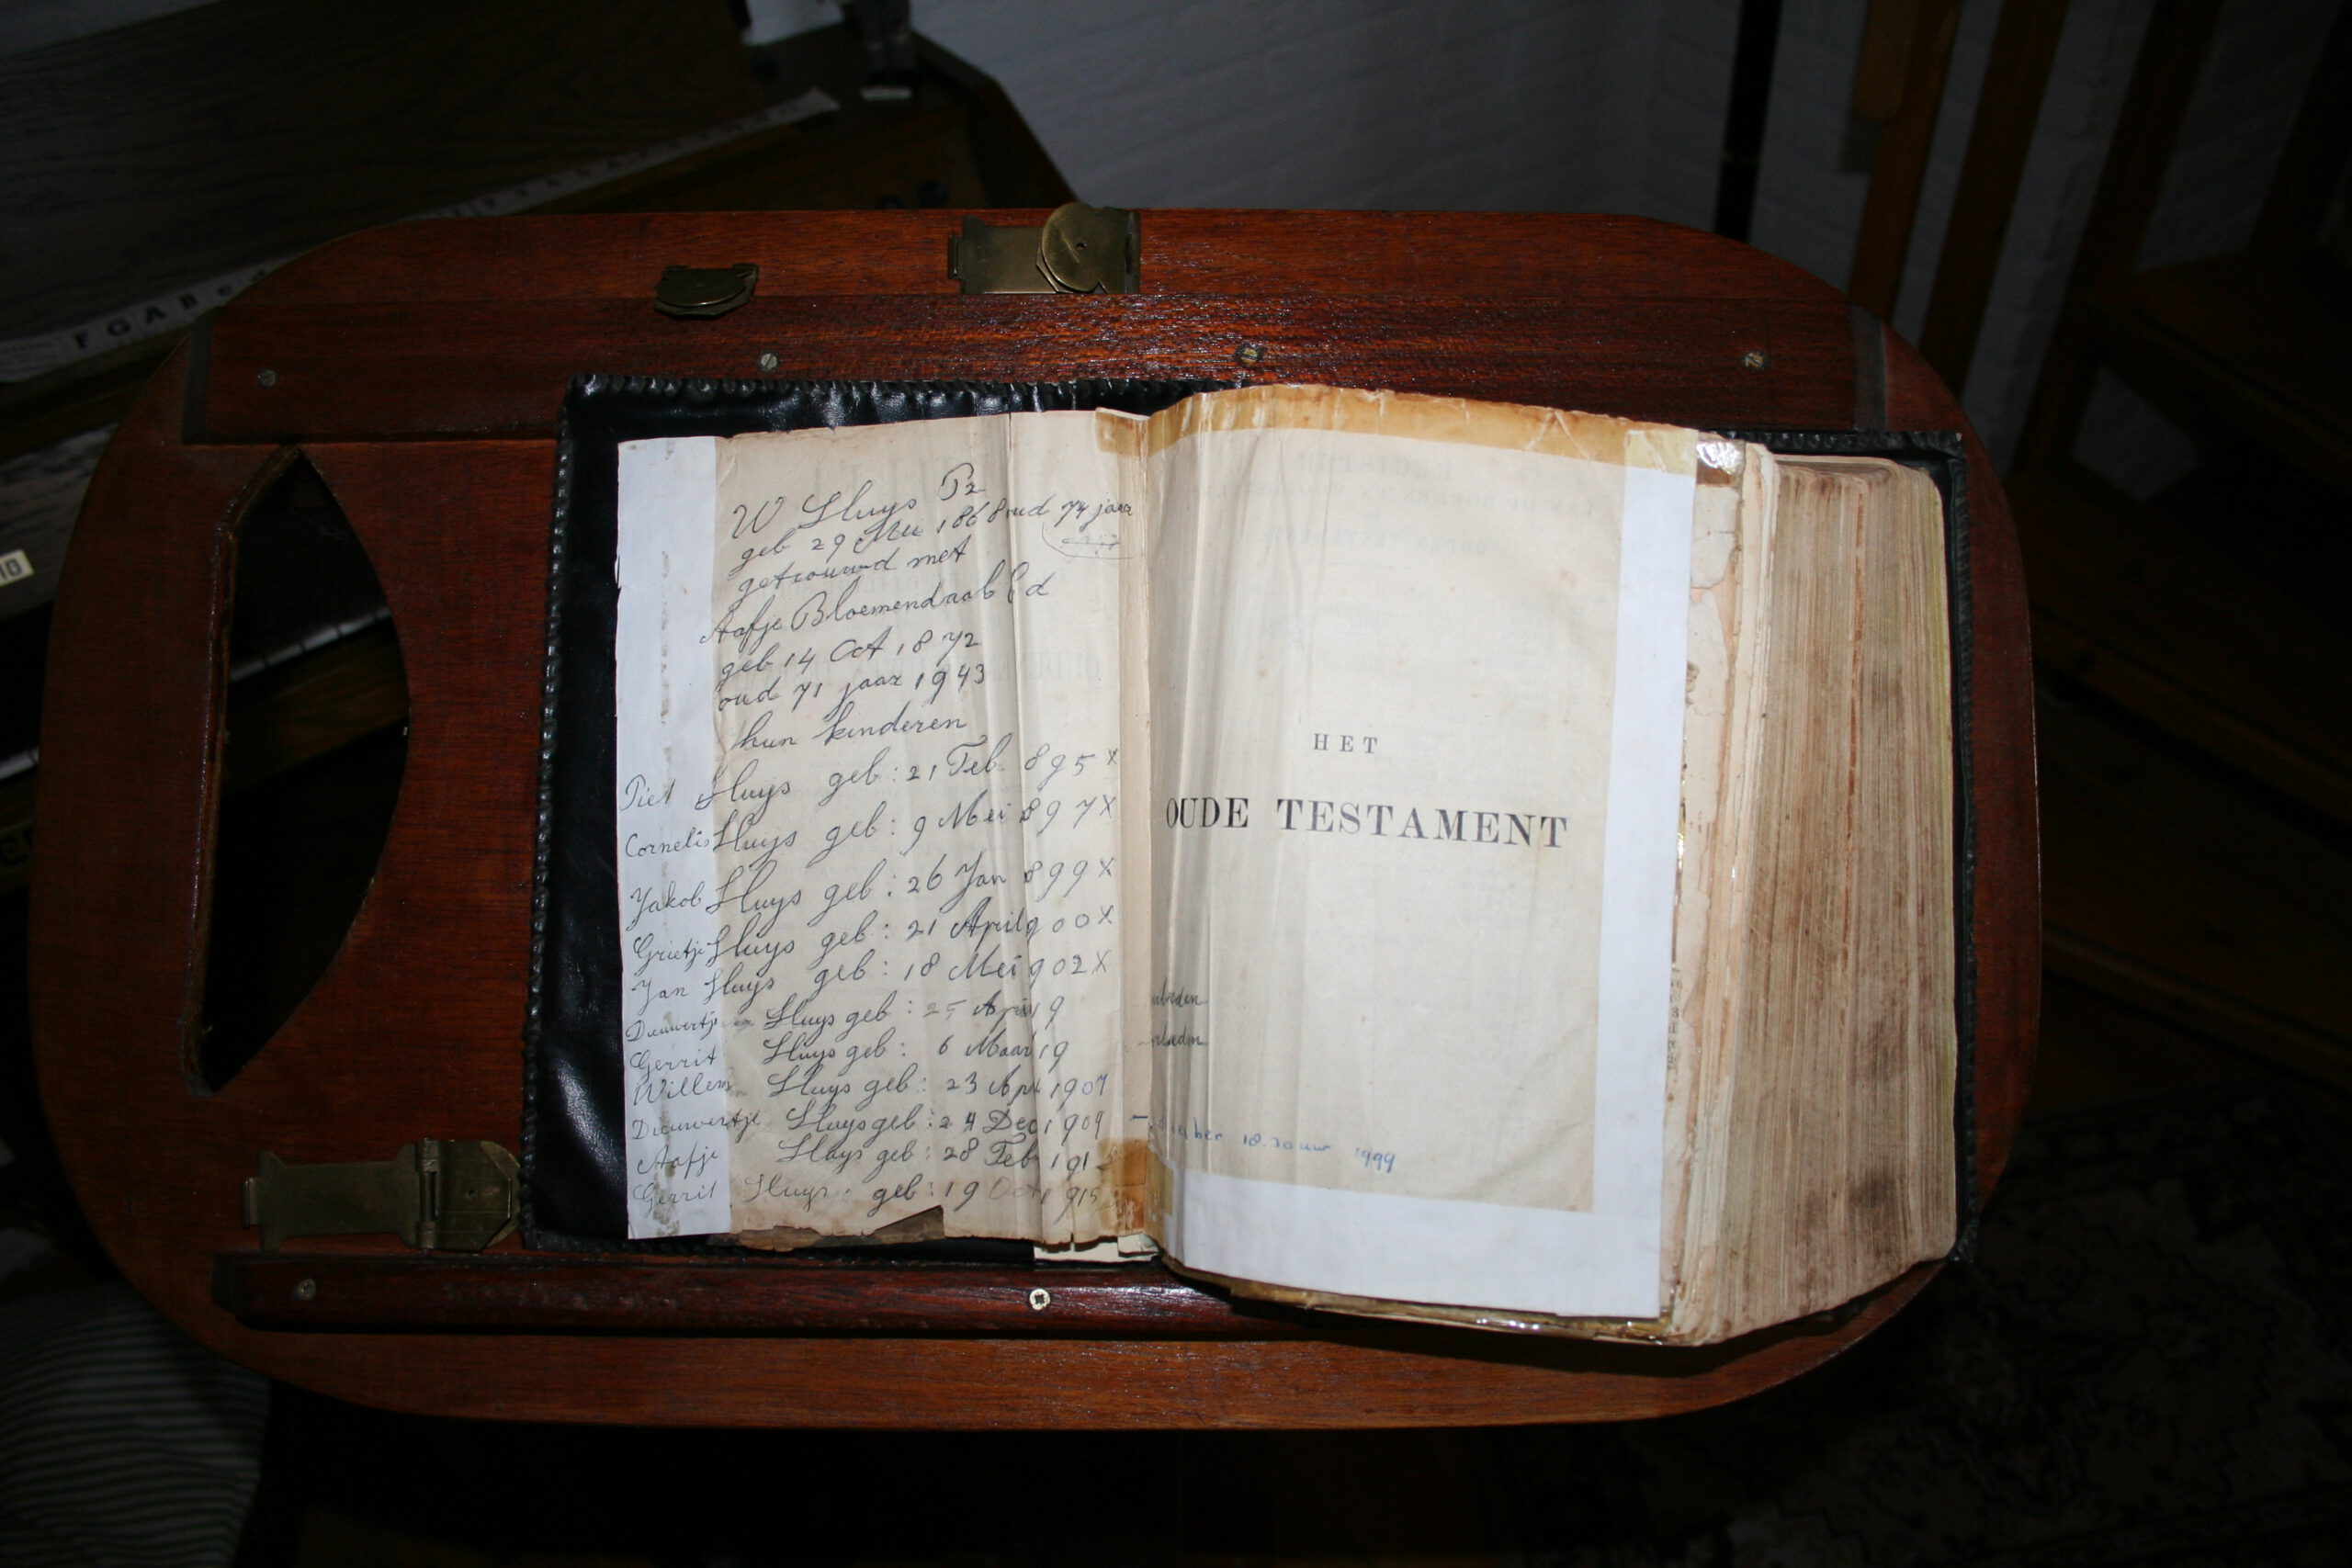 F G A B
W Sluys Pz
geb 29 Mei 1868 oud 74 jaar
getrouwd met
Aafje Bloemendaal Cd
geb 14 Oct 1872
oud 71 jaar 1943
hun kinderen
Piet Sluys geb: 21 Feb 895 x
Cornelis Sluys geb: 9 Mei 897 x
Jakob Sluys geb: 26 Jan 899 x
Grietje Sluys geb: 21 April 900 x
Jan Sluys geb: 18 Mei 902 x
Dieuwertje Sluys geb: 25 April 19
Gerrit Sluys geb: 6 Maar 19
Willem Sluys geb: 23 Apl 1907
Dieuwertje Sluys geb: 24 Dec 1909
Aafje Sluys geb: 28 Feb 191
Gerrit Sluys geb: 19 Oct 1915
HET
OUDE TESTAMENT
uur 1999